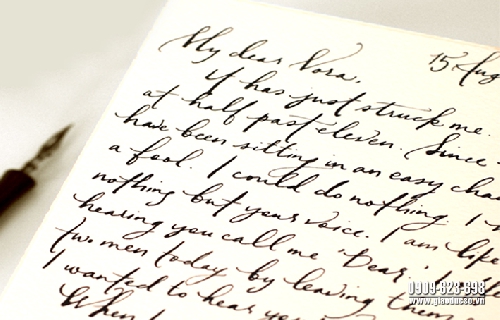 15 Aug
My dear Nora,
It has just struck me.
at half past eleven. Since
have been sitting in an easy chai
a fool. I could do nothing. I
nothing but your voice. I am like
hearing you call me "Dear
two men today by leaving them
I wanted to hear you
When I